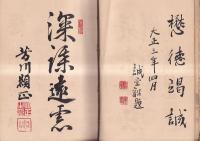 懋德竭誠
大正三年四月
誠堂
題
深謀遠慮
芳川顯正